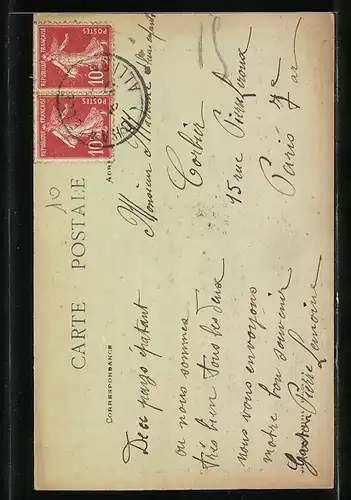 CARTE POSTALE
CORRESPONDANCE
De ce pays épatant
ou nous sommes
très bien tous les deux
nous vous envoyons
notre bon souvenir
Gaston Lemoine
10
REPUBLIQUE FRANÇAISE
POSTES
10
REPUBLIQUE FRANÇAISE
POSTES
10
Monsieur Madame
Corbier
15 rue
Paris 7e
ar